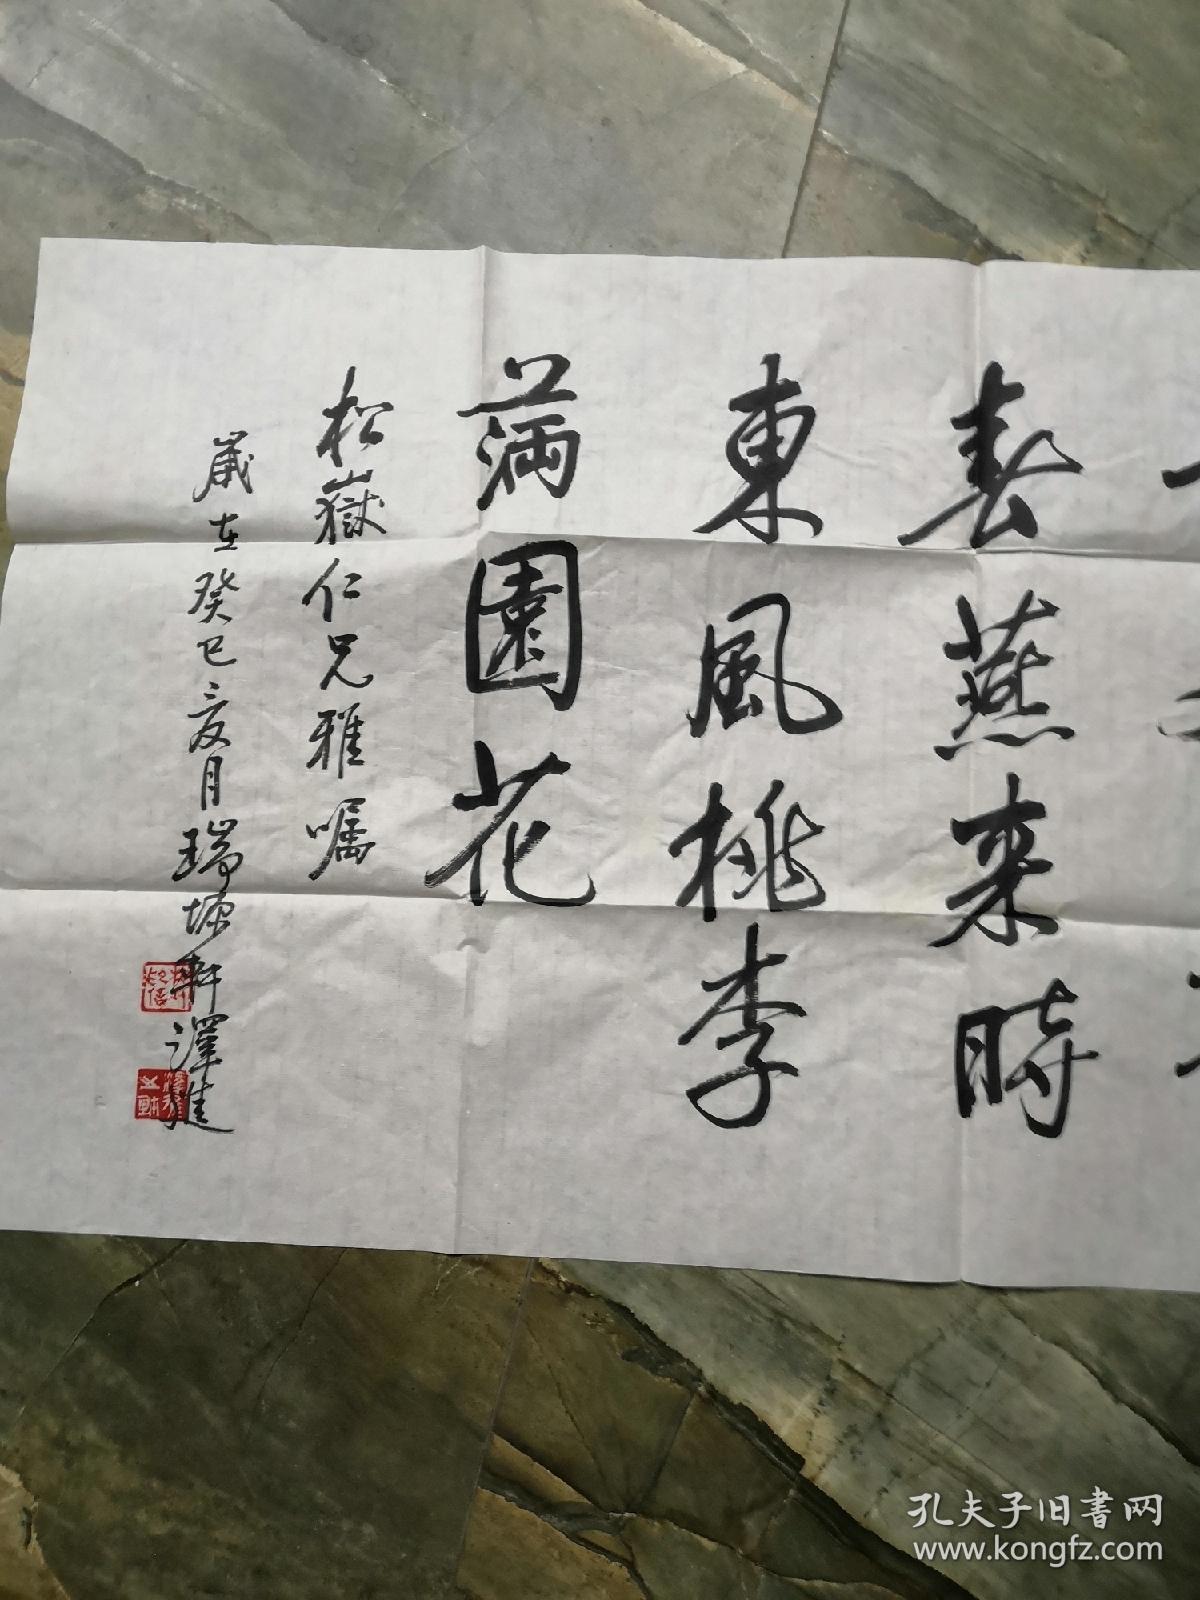 春燕来時
東風桃李
满園花
松嶽仁兄雅嘱
歲在癸巳夏月瑞塬軒澤進
孔夫子旧書网
www.kongfz.com